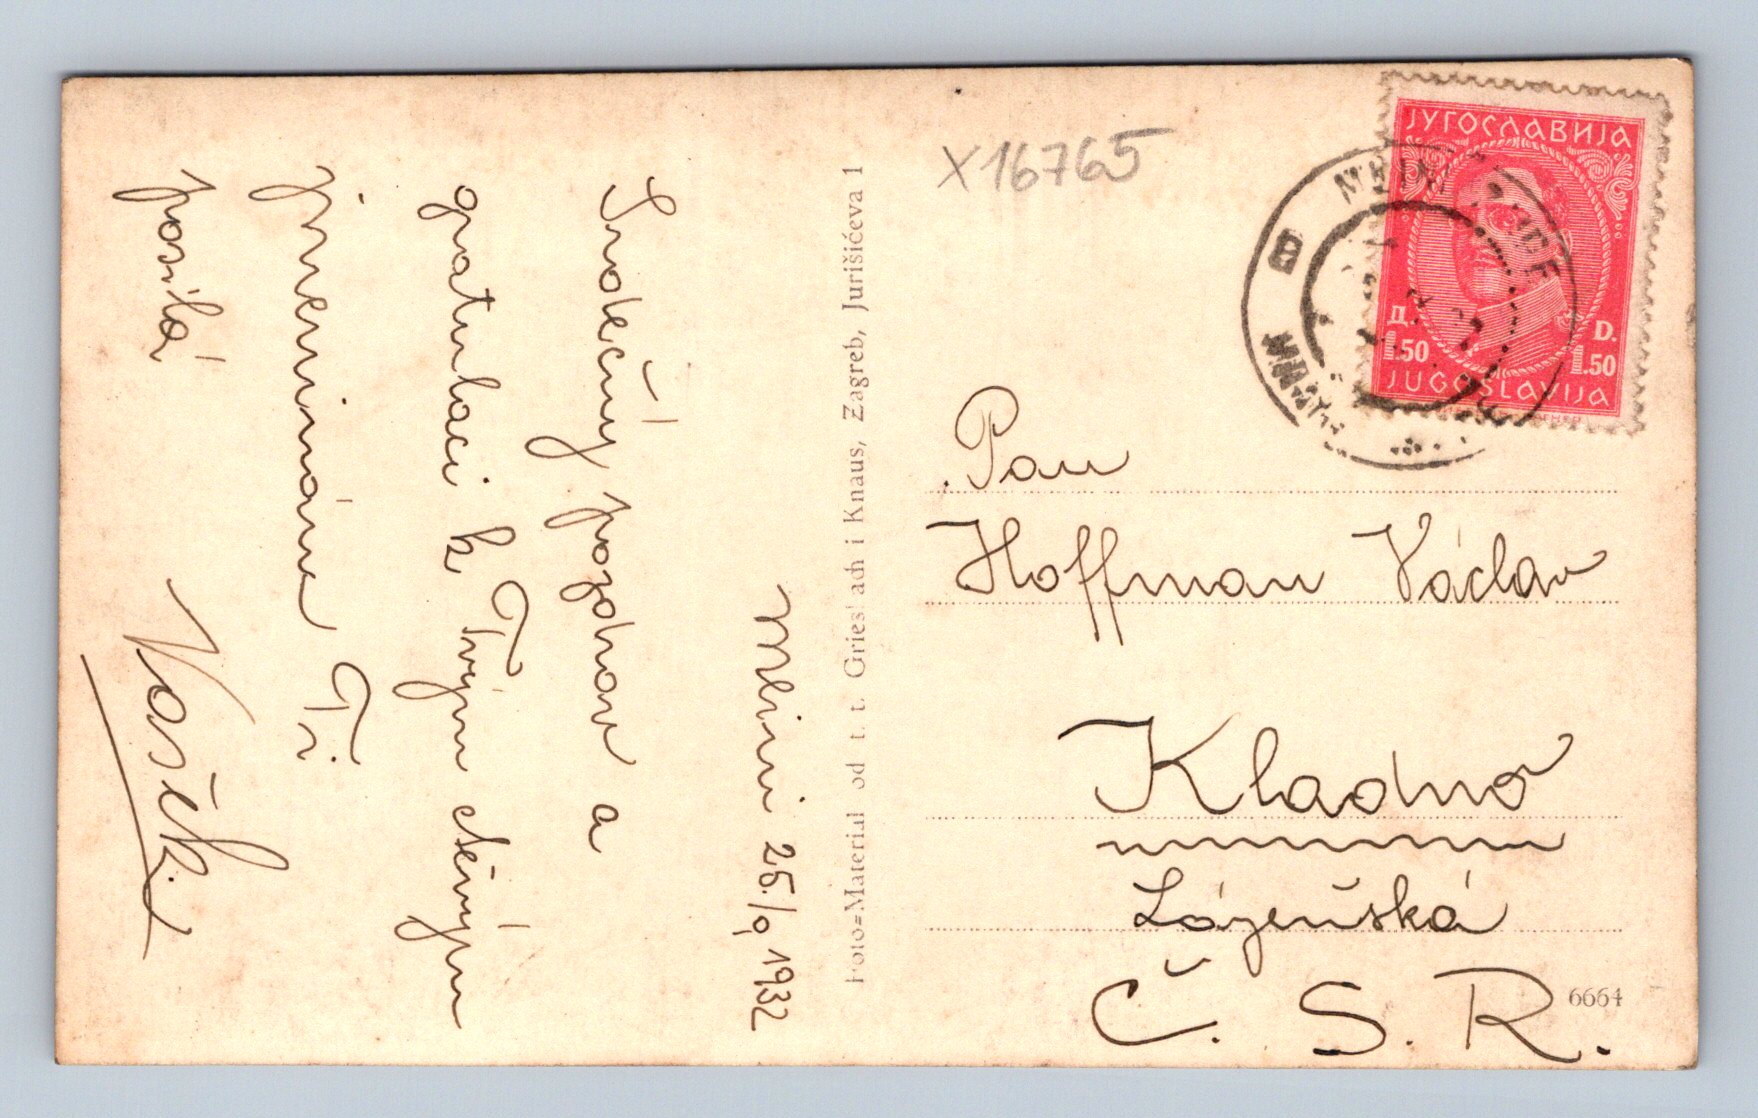 Mlini 25./9 1932
Srdečný pozdrav a
gratulaci k Tvým
jmeninám Ti
posílá
Vašek.
Foto=Material od t. t. Gries'ach i Knaus, Zagreb, Jurišićeva 1
X16765
ЈУГОСЛАВИЈА
Д. D.
1.50 1.50
JUGOSLAVIJA
MLINI
Pan
Hoffman Václav
Kladno
Lázeňská
Č. S. R.
6664